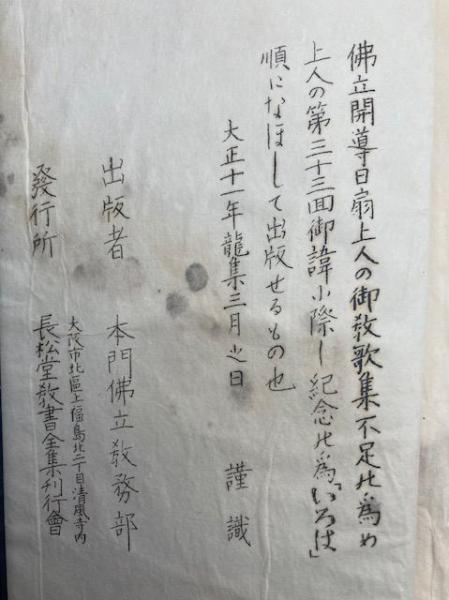 佛立開導日扇上人の御教歌集不足の爲め
上人の第三十三回御諱に際し紀念の爲「いろは」
順になほして出版せるもの也
大正十一年龍集三月之日 謹識
出版者 本門佛立教務部
大阪市北區上福島北二丁目清風寺内
發行所 長松堂教書全集刊行會